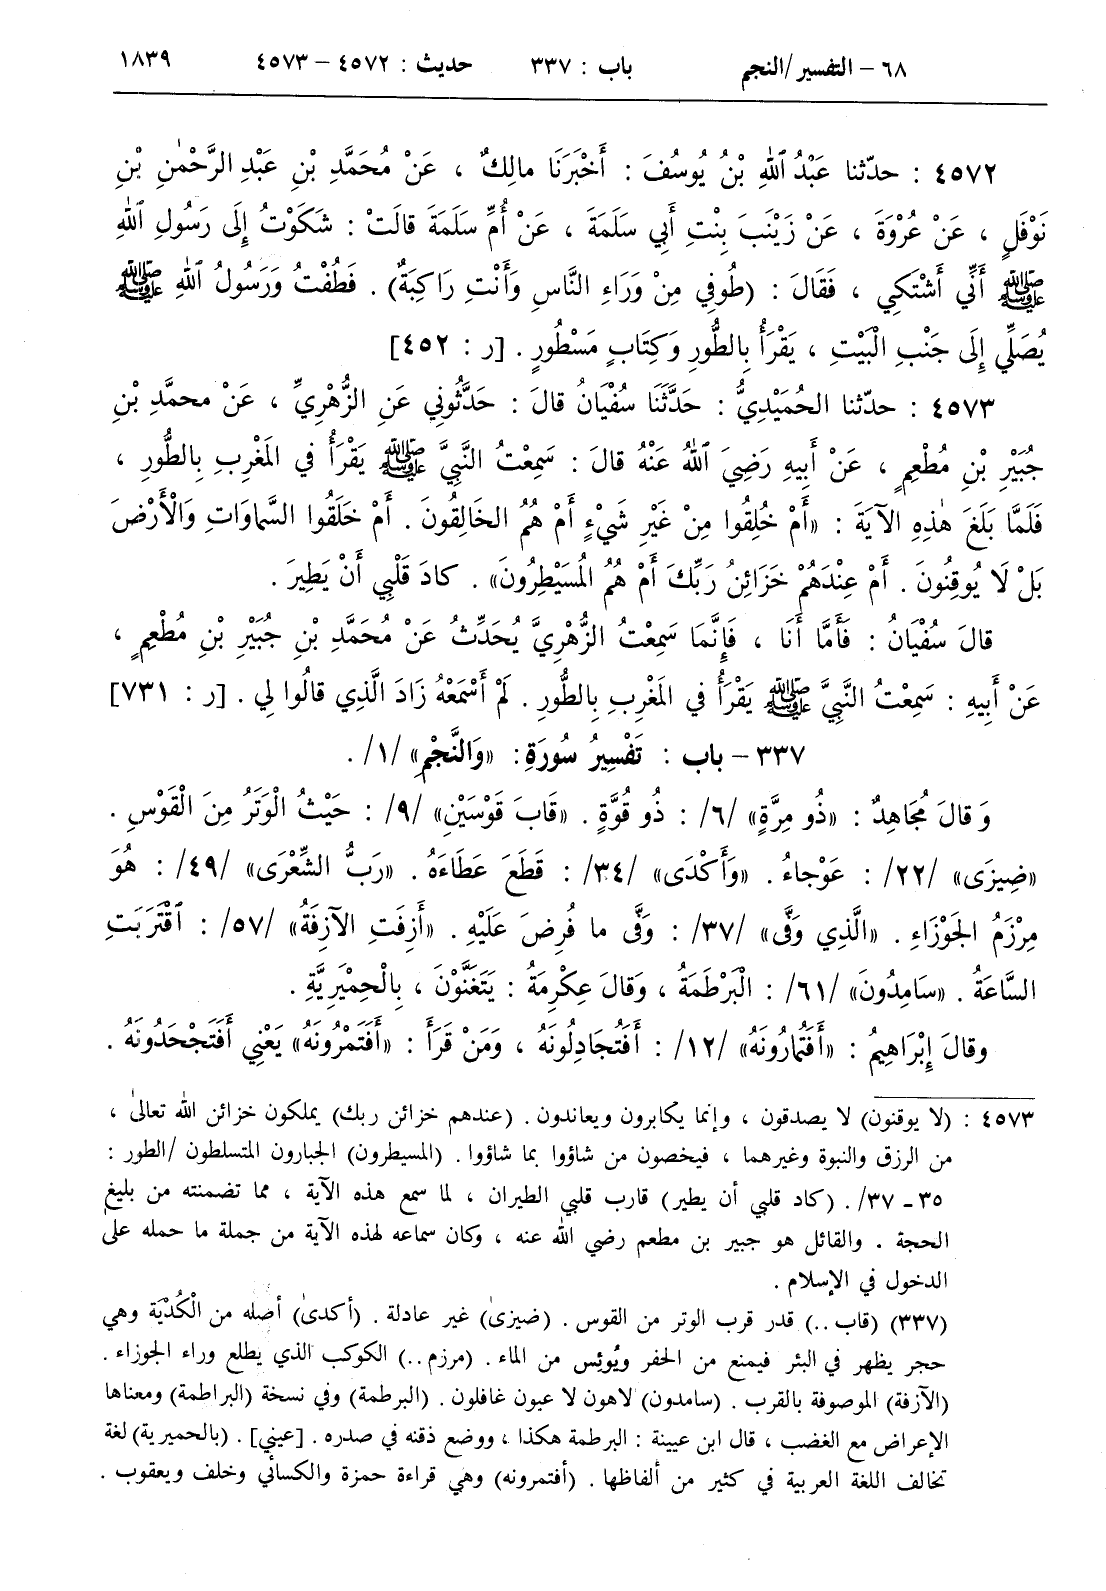 ٦٨ – التفسير/النجم    باب : ٣٣٧    حديث : ٤٥٧٢ – ٤٥٧٣    ١٨٣٩
٤٥٧٢ : حدّثنا عَبْدُ ٱللهِ بْنُ يُوسُفَ : أَخْبَرَنَا مالِكٌ ، عَنْ مُحَمَّدِ بْنِ عَبْدِ الرَّحْمٰنِ بْنِ
نَوْفَلٍ ، عَنْ عُرْوَةَ ، عَنْ زَيْنَبَ بِنْتِ أَبِي سَلَمَةَ ، عَنْ أُمِّ سَلَمَةَ قالَتْ : شَكَوْتُ إِلَى رَسُولِ ٱللهِ
ﷺ أَنِّي أَشْتَكِي ، فَقَالَ : (طُوفِي مِنْ وَرَاءِ النَّاسِ وَأَنْتِ رَاكِبَةٌ) . فَطُفْتُ وَرَسُولُ ٱللهِ ﷺ
يُصَلِّي إِلَى جَنْبِ الْبَيْتِ ، يَقْرَأُ بِالطُّورِ وَكِتَابٍ مَسْطُورٍ . [ر : ٤٥٢]
٤٥٧٣ : حدّثنا الحُمَيْدِيُّ : حَدَّثَنَا سُفْيَانُ قالَ : حَدَّثُونِي عَنِ الزُّهْرِيِّ ، عَنْ محمَّدِ بْنِ
جُبَيْرِ بْنِ مُطْعِمٍ ، عَنْ أَبِيهِ رَضِيَ ٱللهُ عَنْهُ قالَ : سَمِعْتُ النَّبِيَّ ﷺ يَقْرَأُ في المَغْرِبِ بِالطُّورِ ،
فَلَمَّا بَلَغَ هٰذِهِ الآيَةَ : «أَمْ خُلِقُوا مِنْ غَيْرِ شَيْءٍ أَمْ هُمُ الخَالِقُونَ . أَمْ خَلَقُوا السَّماوَاتِ وَالْأَرْضَ
بَلْ لَا يُوقِنُونَ . أَمْ عِنْدَهُمْ خَزَائِنُ رَبِّكَ أَمْ هُمُ المُسَيْطِرُونَ» . كادَ قَلْبِي أَنْ يَطِيرَ .
قالَ سُفْيَانُ : فَأَمَّا أَنَا ، فَإِنَّمَا سَمِعْتُ الزُّهْرِيَّ يُحَدِّثُ عَنْ مُحَمَّدِ بْنِ جُبَيْرِ بْنِ مُطْعِمٍ ،
عَنْ أَبِيهِ : سَمِعْتُ النَّبِيَّ ﷺ يَقْرَأُ في المَغْرِبِ بِالطُّورِ . لَمْ أَسْمَعْهُ زَادَ الَّذِي قالُوا لِي . [ر : ٧٣١]
٣٣٧ – باب : تَفْسِيرُ سُورَةِ : «وَالنَّجْمِ» /١/ .
وَ قالَ مُجَاهِدٌ : «ذُو مِرَّةٍ» /٦/ : ذُو قُوَّةٍ . «قَابَ قَوْسَيْنِ» /٩/ : حَيْثُ الْوَتَرُ مِنَ الْقَوْسِ .
«ضِيزَى» /٢٢/ : عَوْجاءُ . «وَأَكْدَى» /٣٤/ : قَطَعَ عَطَاءَهُ . «رَبُّ الشِّعْرَى» /٤٩/ : هُوَ
مِرْزَمُ الجَوْزَاءِ . «الَّذِي وَفَّى» /٣٧/ : وَفَّى ما فُرِضَ عَلَيْهِ . «أَزِفَتِ الآزِفَةُ» /٥٧/ : ٱقْتَرَبَتِ
السَّاعَةُ . «سَامِدُونَ» /٦١/ : الْبَرْطَمَةُ ، وَقالَ عِكْرِمَةُ : يَتَغَنَّوْنَ ، بِالْحِمْيَرِيَّةِ .
وقالَ إِبْرَاهِيمُ : «أَفَتُمَارُونَهُ» /١٢/ : أَفَتُجَادِلُونَهُ ، وَمَنْ قَرَأَ : «أَفَتَمْرُونَهُ» يَعْنِي أَفَتَجْحَدُونَهُ .
٤٥٧٣ : (لا يوقنون) لا يصدقون ، وإنما يكابرون ويعاندون . (عندهم خزائن ربك) يملكون خزائن الله تعالىٰ ،
من الرزق والنبوة وغيرهما ، فيخصون من شاؤوا بما شاؤوا . (المسيطرون) الجبارون المتسلطون /الطور :
٣٥ – ٣٧/ . (كاد قلبي أن يطير) قارب قلبي الطيران ، لما سمع هذه الآية ، مما تضمنته من بليغ
الحجة . والقائل هو جبير بن مطعم رضي الله عنه ، وكان سماعه لهذه الآية من جملة ما حمله على
الدخول في الإسلام .
(٣٣٧) (قاب ..) قدر قرب الوتر من القوس . (ضيزىٰ) غير عادلة . (أكدىٰ) أصله من الْكُدْيَة وهي
حجر يظهر في البئر فيمنع من الحفر ويُوئِس من الماء . (مرزم ..) الكوكب الذي يطلع وراء الجوزاء .
(الآزفة) الموصوفة بالقرب . (سامدون) لاهون لا عبون غافلون . (البرطمة) وفي نسخة (البراطمة) ومعناها
الإعراض مع الغضب ، قال ابن عيينة : البرطمة هكذا ، ووضع ذقنه في صدره . [عيني] . (بالحميرية) لغة
تخالف اللغة العربية في كثير من ألفاظها . (أفتمرونه) وهي قراءة حمزة والكسائي وخلف ويعقوب .